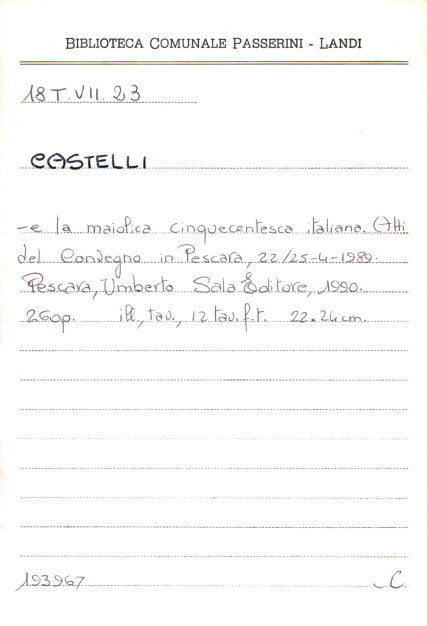 BIBLIOTECA COMUNALE PASSERINI - LANDI
18 T. VII. 23
CASTELLI
- e la maiolica cinquecentesca italiana. (Atti
del Convegno in Pescara, 22/25-4-1989.
Pescara, Umberto Sala Editore, 1990.
260p. ill., tav., 12 tav. f. t. 22x24 cm.
193967 C